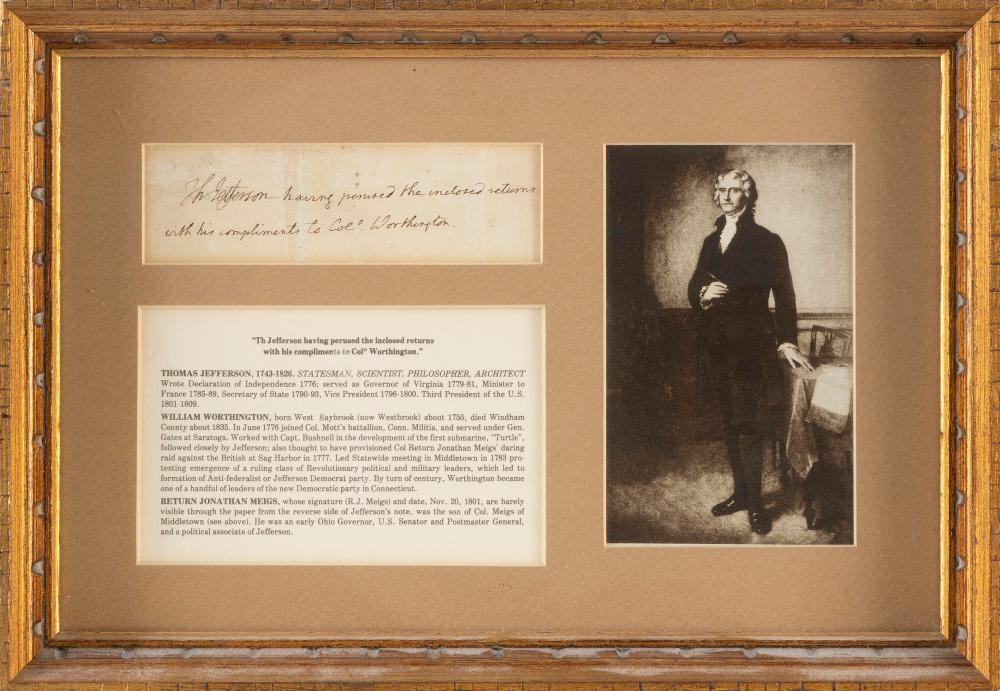 Th Jefferson having perused the inclosed returns
with his compliments to Colº Worthington.
"Th Jefferson having perused the inclosed returns
with his compliments to Colº Worthington."
THOMAS JEFFERSON, 1743-1826. STATESMAN, SCIENTIST, PHILOSOPHER, ARCHITECT
Wrote Declaration of Independence 1776; served as Governor of Virginia 1779-81, Minister to
France 1785-89, Secretary of State 1790-93, Vice President 1796-1800. Third President of the U.S.
1801-1809.
WILLIAM WORTHINGTON, born West Saybrook (now Westbrook) about 1750, died Windham
County about 1835. In June 1776 joined Col. Mott's battallion, Conn. Militia, and served under Gen.
Gates at Saratoga. Worked with Capt. Bushnell in the development of the first submarine, "Turtle",
followed closely by Jefferson; also thought to have provisioned Col Return Jonathan Meigs' daring
raid against the British at Sag Harbor in 1777. Led Statewide meeting in Middletown in 1783 pro-
testing emergence of a ruling class of Revolutionary political and military leaders, which led to
formation of Anti-federalist or Jefferson Democrat party. By turn of century, Worthington became
one of a handful of leaders of the new Democratic party in Connecticut.
RETURN JONATHAN MEIGS, whose signature (R.J. Meigs) and date, Nov. 20, 1801, are barely
visible through the paper from the reverse side of Jefferson's note, was the son of Col. Meigs of
Middletown (see above). He was an early Ohio Governor, U.S. Senator and Postmaster General,
and a political associate of Jefferson.